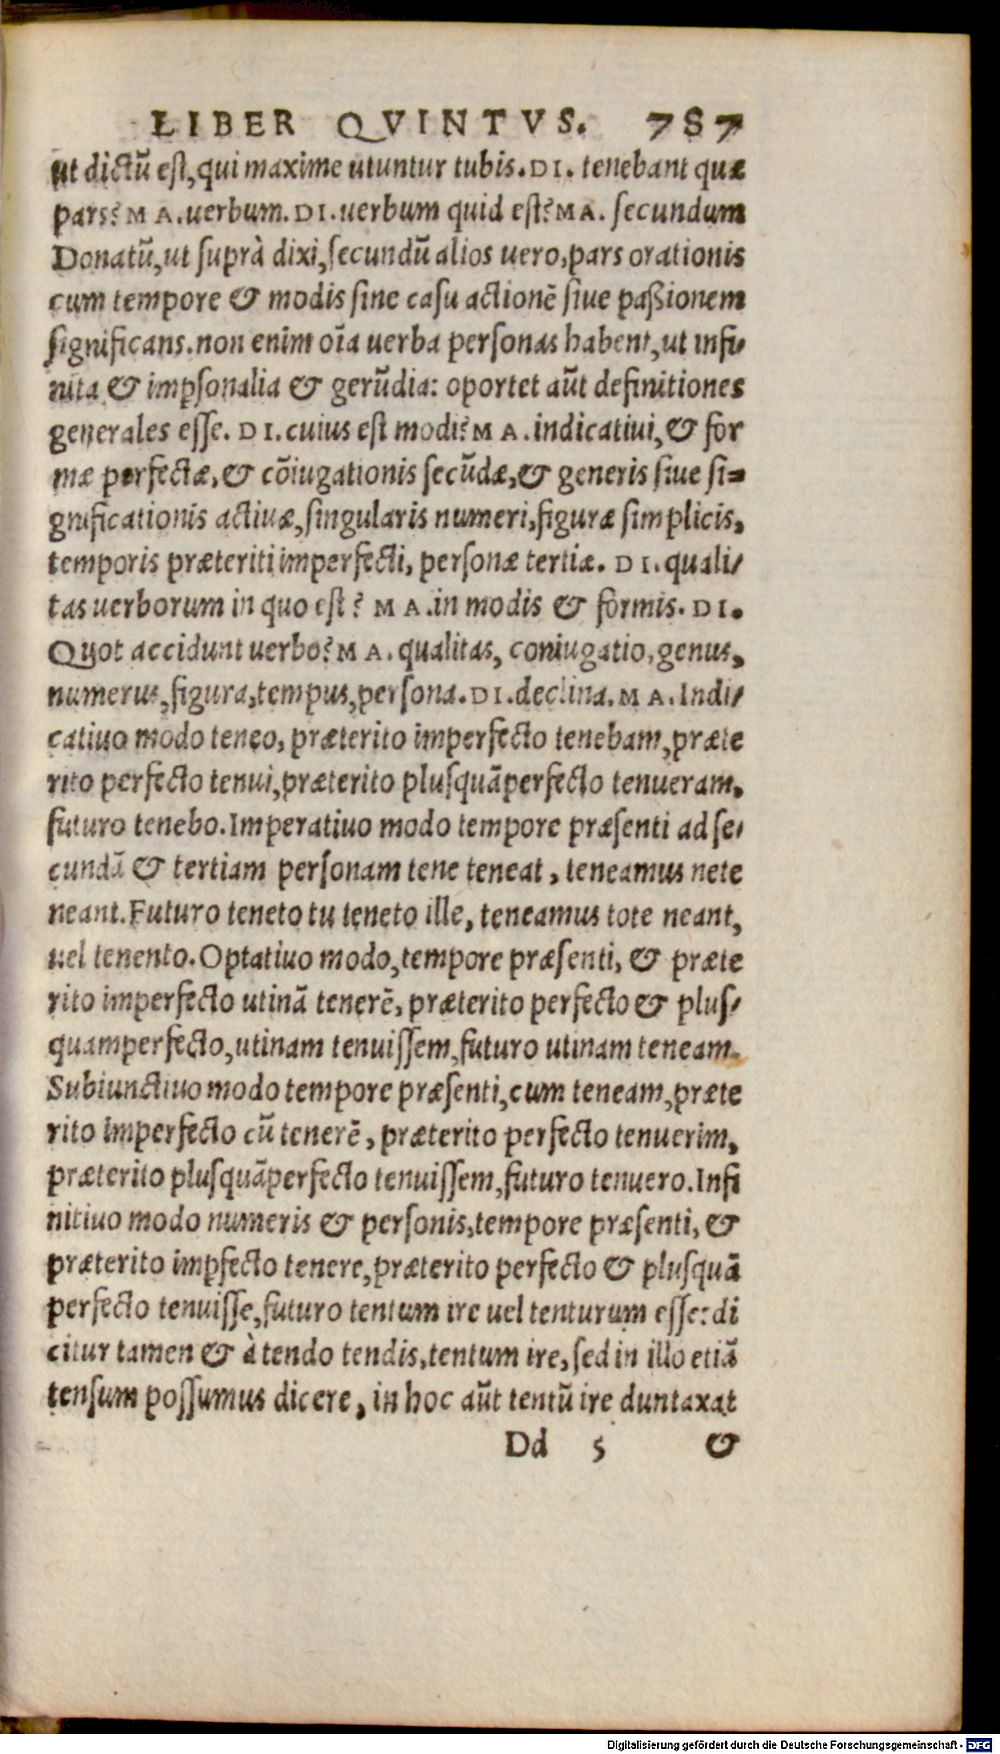 LIBER QVINTVS. 787
ut dictũ est, qui maxime utuntur tubis. DI. tenebant quæ
pars? MA. uerbum. DI. uerbum quid est? MA. secundum
Donatũ, ut suprà dixi, secundũ alios uero, pars orationis
cum tempore & modis sine casu actionẽ siue paßionem
significans. non enim oĩa uerba personas habent, ut infi-
nita & impsonalia & gerũdia: oportet aũt definitiones
generales esse. DI. cuius est modi? MA. indicatiui, & for
mæ perfectæ, & cõiugationis secũdæ, & generis siue si-
gnificationis actiuæ, singularis numeri, figuræ simplicis,
temporis præteriti imperfecti, personæ tertiæ. DI. quali-
tas uerborum in quo est? MA. in modis & formis. DI.
Quot accidunt uerbo? MA. qualitas, coniugatio, genus,
numerus, figura, tempus, persona. DI. declina. MA. Indi-
catiuo modo teneo, præterito imperfecto tenebam, præte
rito perfecto tenui, præterito plusquãperfecto tenueram,
futuro tenebo. Imperatiuo modo tempore præsenti ad se-
cundã & tertiam personam tene teneat, teneamus nete
neant. Futuro teneto tu teneto ille, teneamus tote neant,
uel tenento. Optatiuo modo, tempore præsenti, & præte
rito imperfecto utinã tenerẽ, præterito perfecto & plus-
quamperfecto, utinam tenuissem, futuro utinam teneam.
Subiunctiuo modo tempore præsenti, cum teneam, præte
rito imperfecto cũ tenerẽ, præterito perfecto tenuerim,
præterito plusquãperfecto tenuissem, futuro tenuero. Infi
nitiuo modo numeris & personis, tempore præsenti, &
præterito impfecto tenere, præterito perfecto & plusquã
perfecto tenuisse, futuro tentum ire uel tenturum esse: di
citur tamen & à tendo tendis, tentum ire, sed in illo etiã
tensum possumus dicere, in hoc aũt tentũ ire duntaxat
Dd 5 &
Digitalisierung gefördert durch die Deutsche Forschungsgemeinschaft - DFG